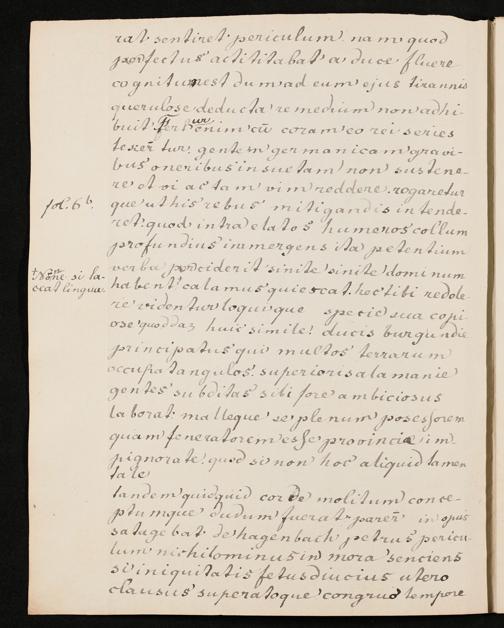 rat sentiret periculum. nam quod
perfectus actitabat a duce fluere
cognitu est dum ad eum ejus tirannis
querulose deducta remedium non adhi-
buit. Fertur enim cū coram eo rei series
texer̄tur gentem germanicam gravi-
bus oneribus insuetam non sustene-
re et vi actam vim reddere. rogaretur
que ut his rebus mitigandis intende-
ret. quod intra elatos humeros collum
profundius inmergens ita petentium
verba perciderit sinite sinite dominum
habent calamus quiescat. hec tibi redole-
re videntur loqui que specie sua copi-
ose quoddaz huic simile! ducis burgundie
principatus qui multos terrarum
occupat angulos. superioris alamanie
gentes subditas sibi fore ambiciosus
laborat. malleque se plenum posessorem
quam feneratorem esse provincie im-
pignorate. quod si non hoc aliquid tamen
tale
tandem quidquid corde molitum conce-
ptumque dudum fuerat parer̄ in opus
satagebat. de hagenbach petrus pericu-
lum nichilominus in mora senciens
si iniquitatis fetus diucius utero
clausus superatoque congruo tempore
fol. 6b.
si la-
ceat lingua.